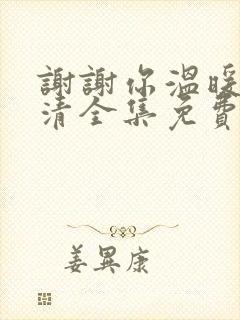 謝謝你溫暖
清全集免費
姜異康